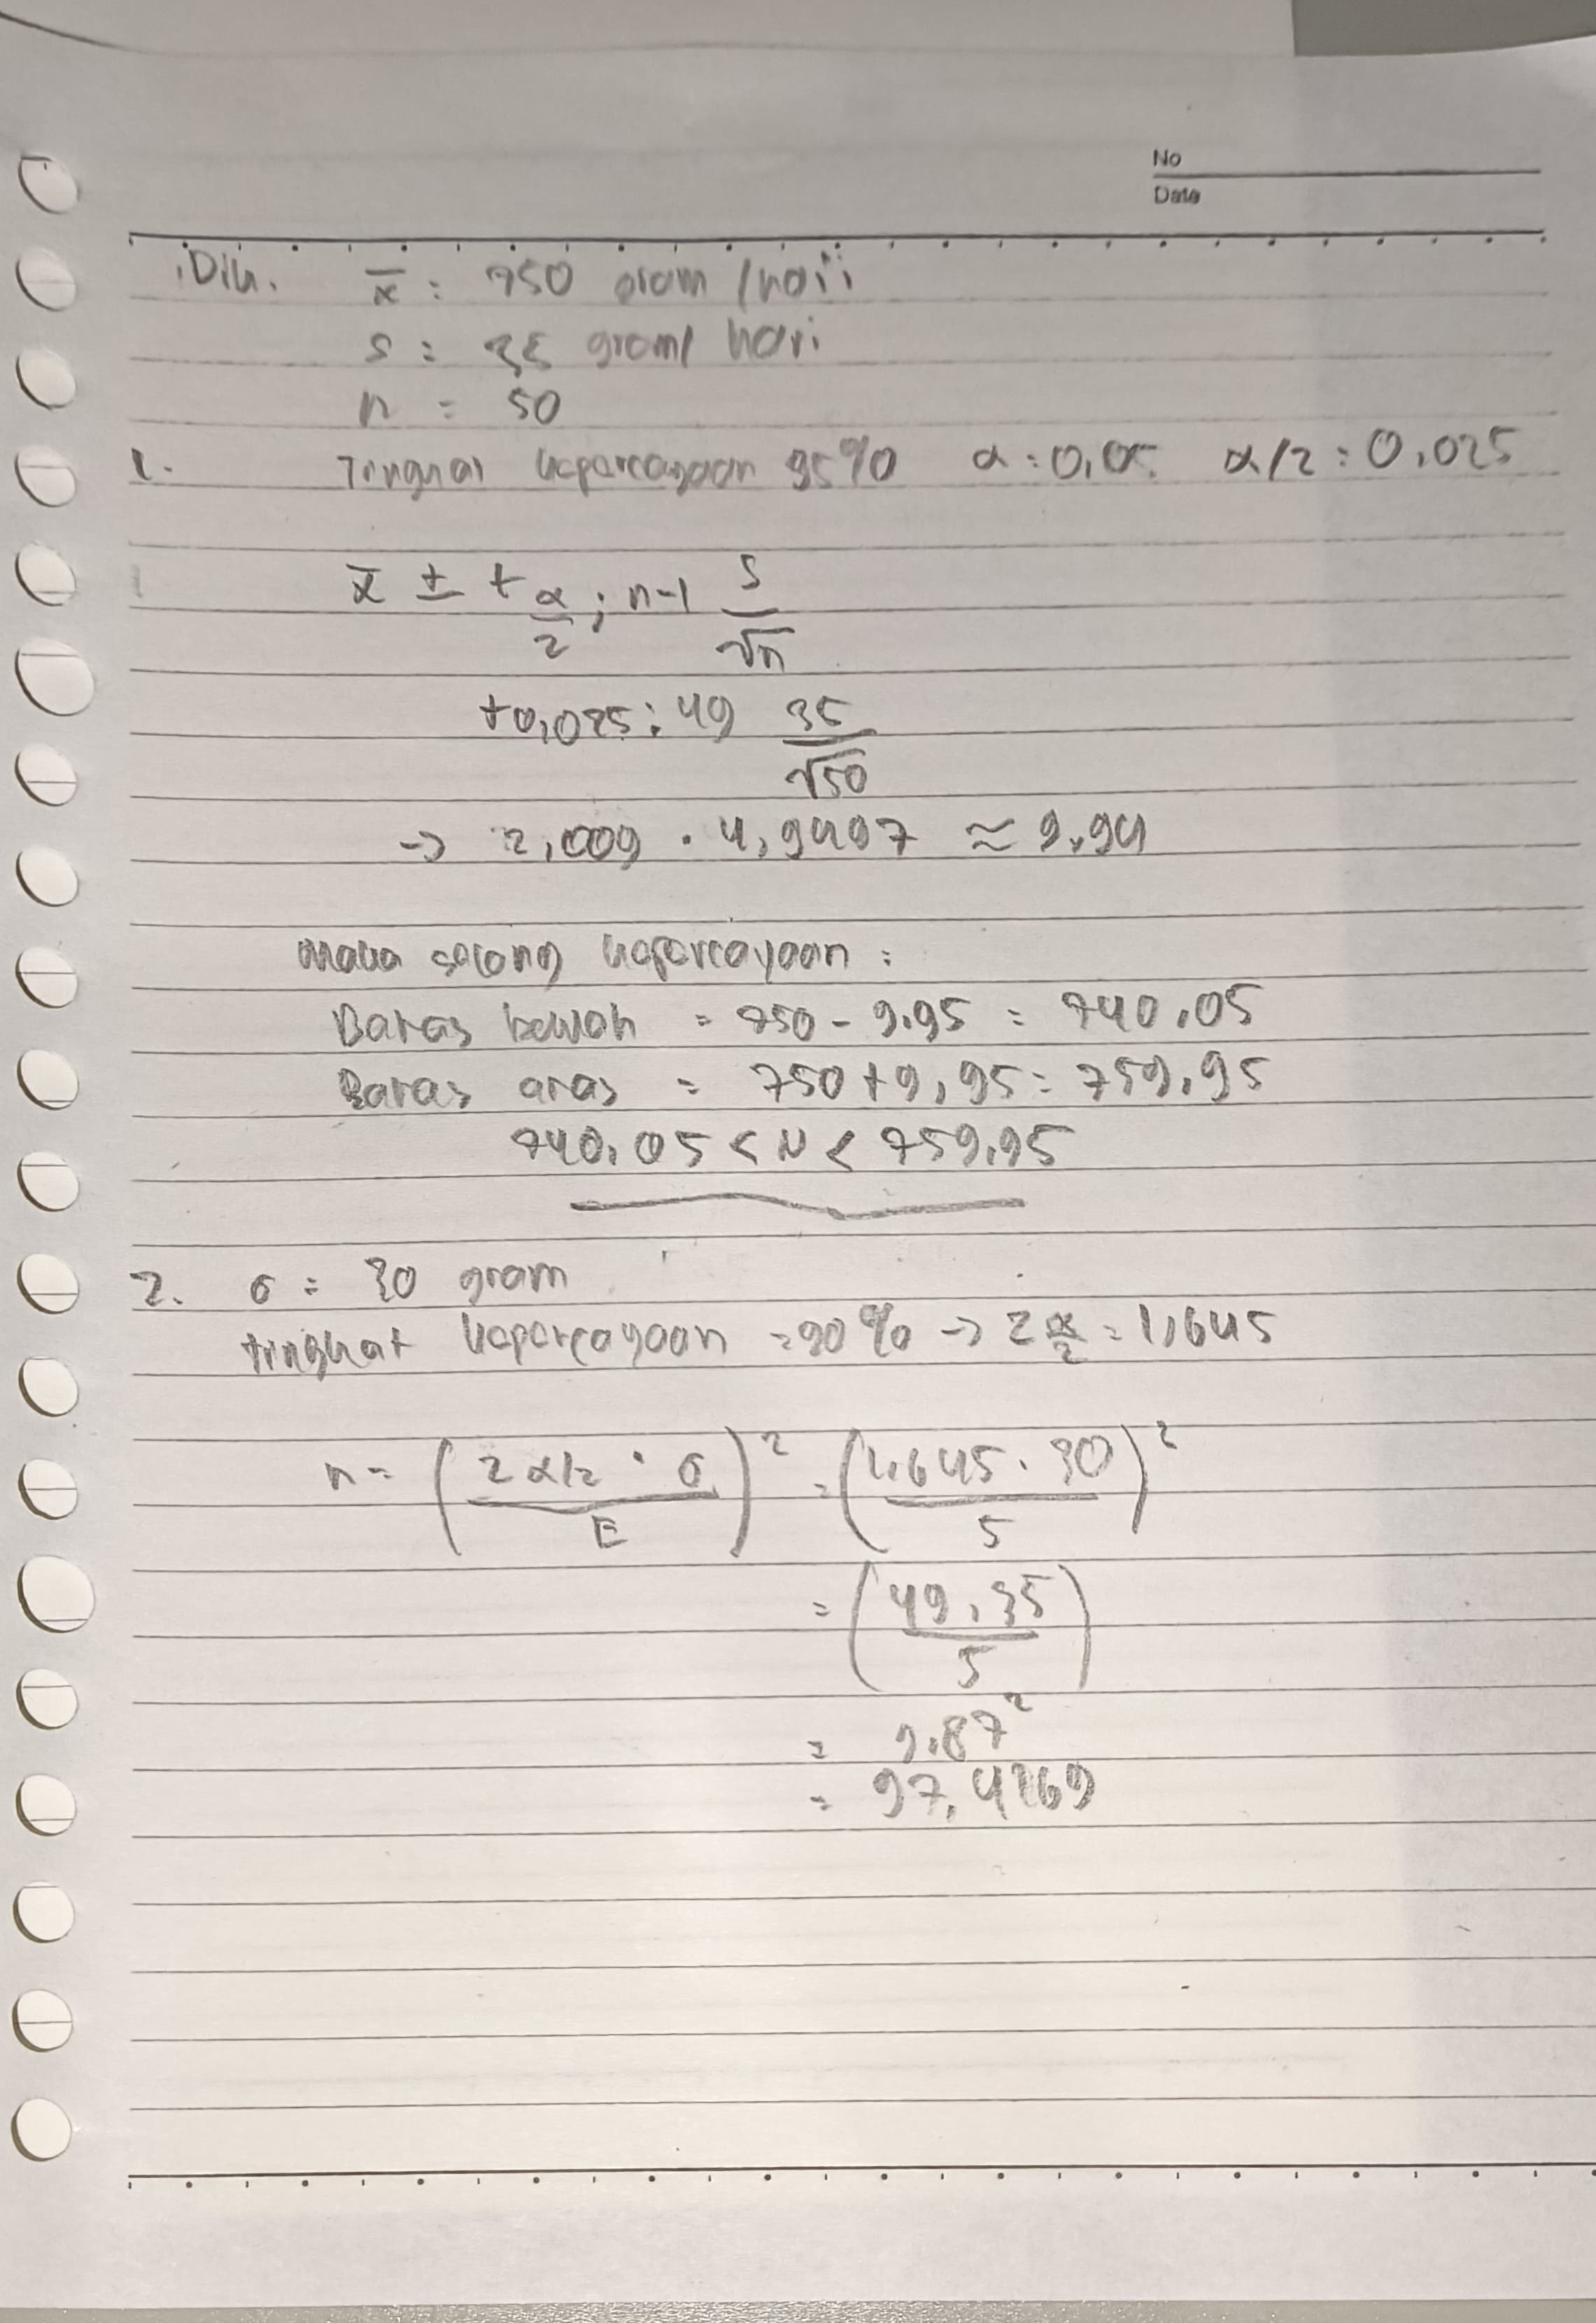 No
Date
Dik. x̄ : 750 gram /hari
s : 35 gram/ hari
n = 50
1. Tingkat kepercayaan 95% α : 0,05 α/2 : 0,025
x̄ ± t α/2 ; n-1 s/√n
t0,025 : 49 35/√50
→ 2,009 . 4,9497 ≈ 9,94
Maka selang kepercayaan :
Batas bawah = 750 - 9,95 = 740,05
Batas atas = 750 + 9,95 = 759,95
740,05 < μ < 759,95
2. σ = 30 gram
tingkat kepercayaan = 90% → z α/2 = 1,645
n = (z α/2 . σ / E)² = (1,645 . 30 / 5)²
= (49,35 / 5)
= 9,87²
= 97,4169